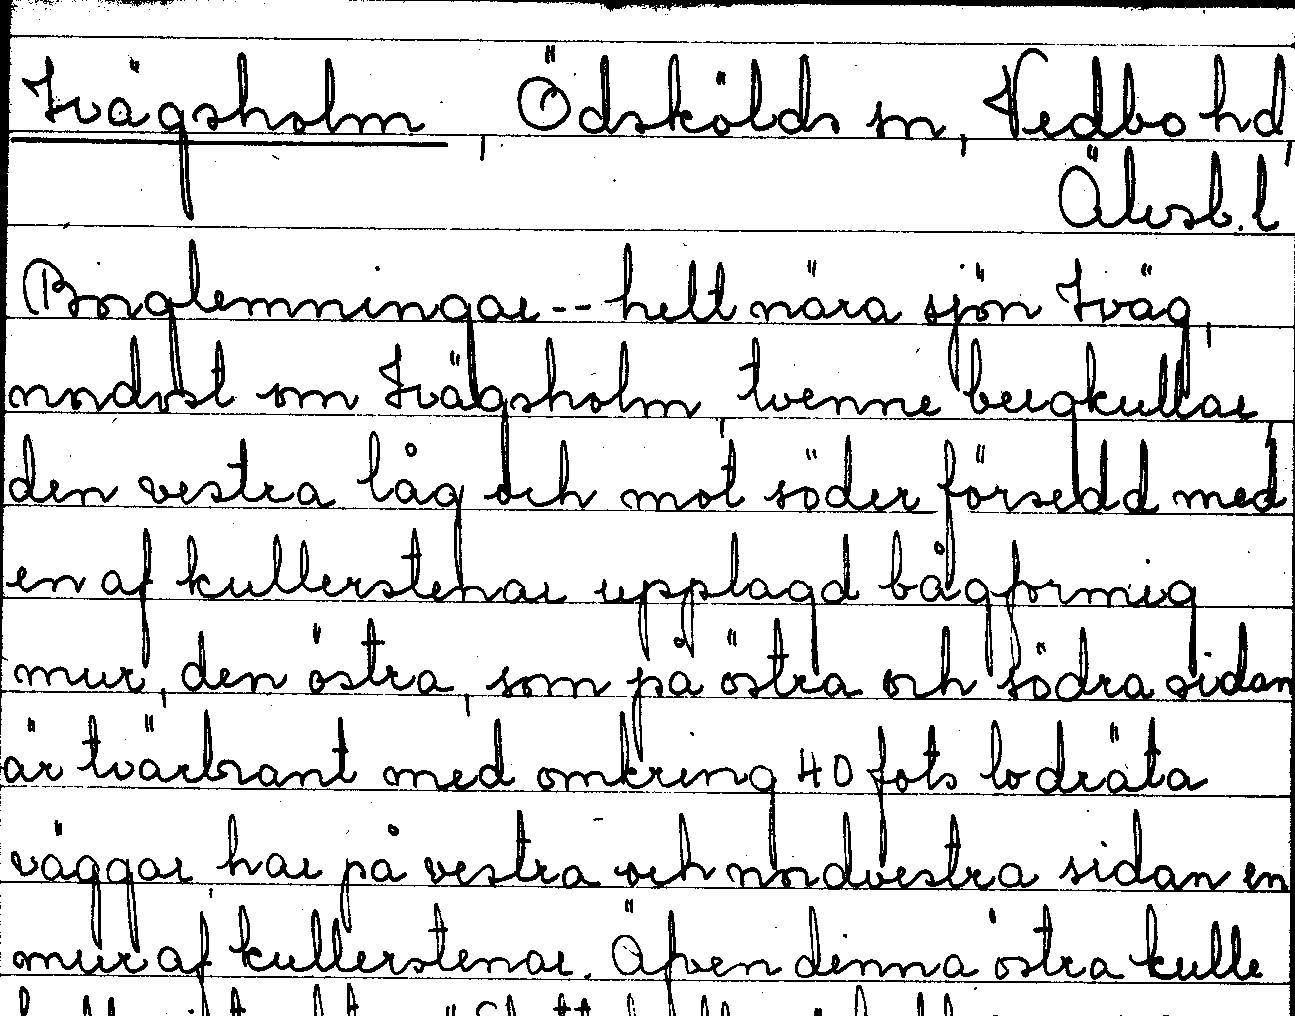 Ivägsholm, Ödskölds sn, Vedbo hd,
Älvsb. l
Borglemningar -- helt nära sjön Iväg,
nordost om Ivägsholm, tvenne bergkullar,
den vestra låg och mot söder försedd med
en af kullerstenar upplagd bågformig
mur, den östra, som på östra och södra sidan
är tvärbrant med omkring 40 fots lodräta
väggar, har på vestra och nordvestra sidan en
mur af kullerstenar. Äfven denna östra kulle